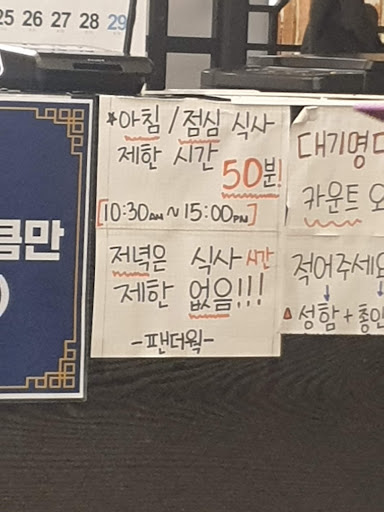 25 26 27 28 29
*아침 / 점심 식사
제한 시간
50분!
[10:30AM ~ 15:00PM]
저녁은 식사 시간
제한 없음!!!
-팬더웍-
큼만
)
대기명단
카운트 오
적어주세요
성함 + 총인